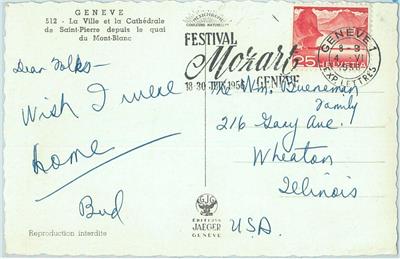 GENEVE
512 - La Ville et la Cathédrale
de Saint-Pierre depuis le quai
du Mont-Blanc
FESTIVAL
Mozart
18-30 JUIN 1956 GENÈVE
GENÈVE 1
EXP. LETTRES
25
HELVETIA
Dear Folks-
Wish I were
home
Bud
The Wm.
Family
216 Gary Ave.
Wheaton
Illinois
U.S.A.
ÉDITIONS
JAEGER
GENÈVE
Reproduction interdite